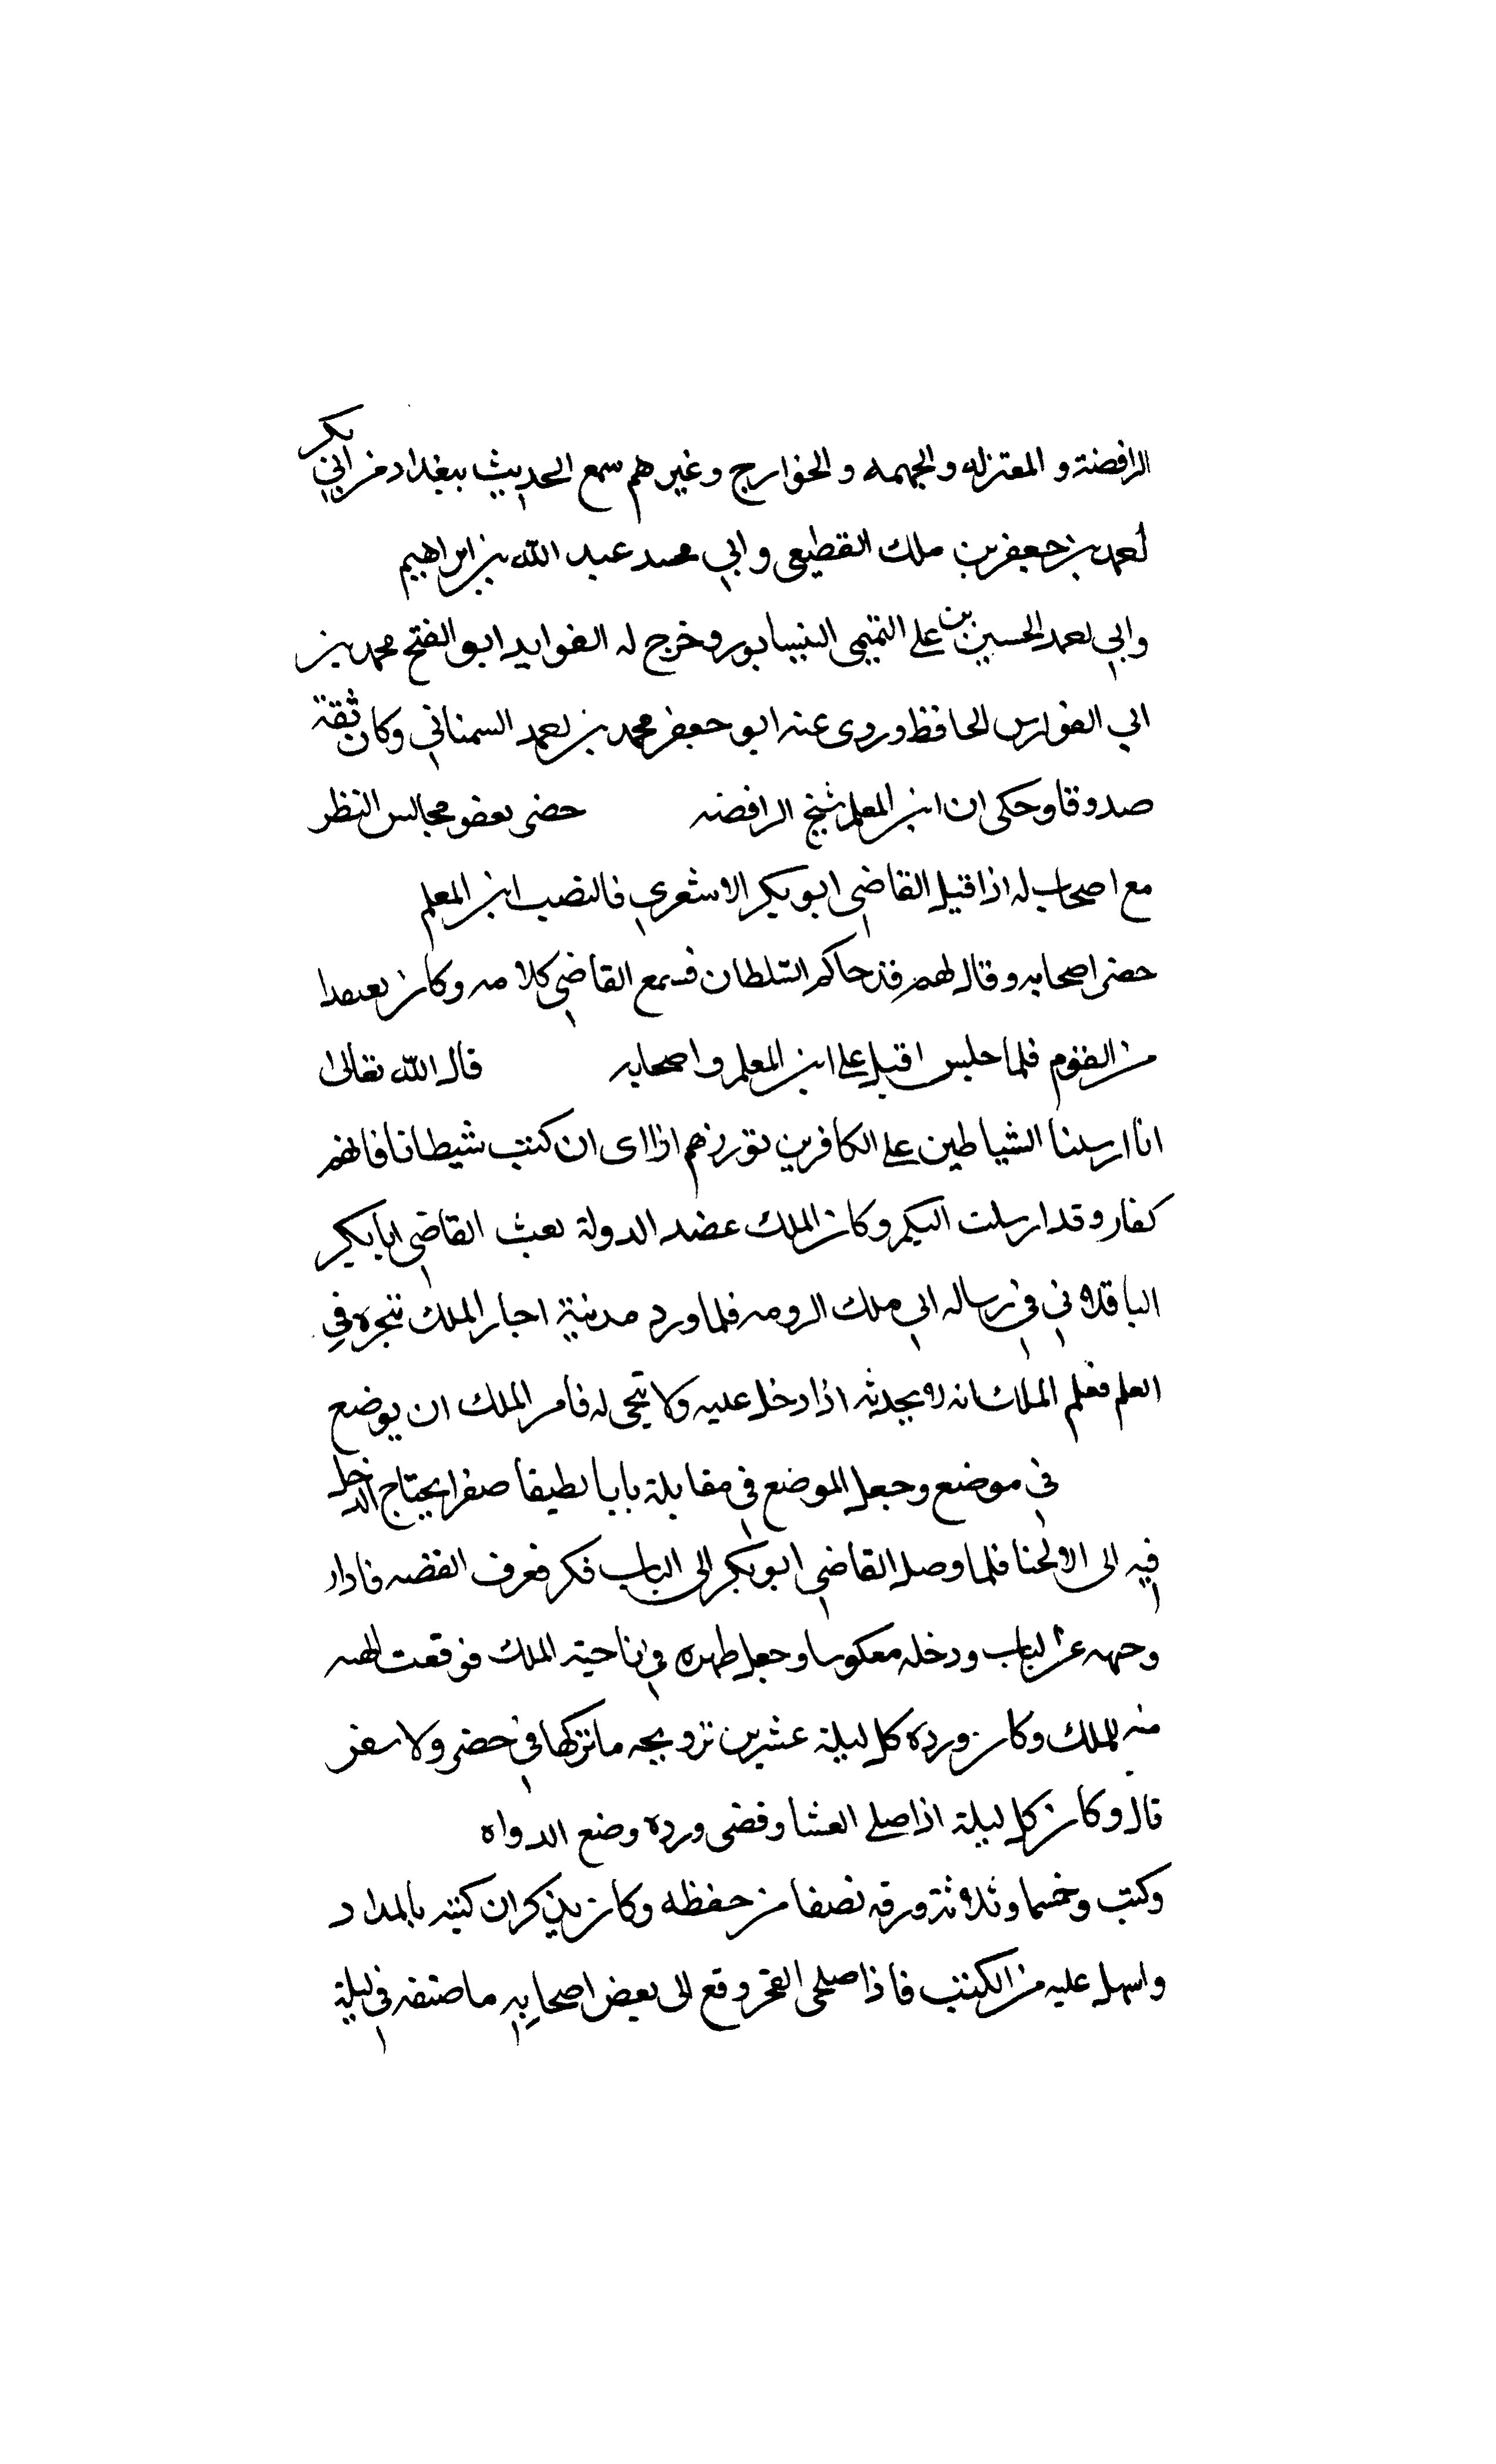 الرافضة و المعتزله والجهمه و الخوارج وغيرهم سمع الحديث ببغداد من ابي بكر
احمد بن جعفر بن ملك القطيعى وابي محمد عبد الله بن ابراهيم
وابي احمد الحسين بن علي التميمى النيسابورو خرج له الفوايد ابو الفتح محمد بن
ابي الفوارس الحافظ وروى عنه ابو جعفر محمد بن احمد السمناني وكان ثقة
صدوقا وحكى ان ابن المعلم شيخ الرافضه حضر بعض مجالس النظر
مع اصحاب له اذا قبل القاضي ابو بكر الاشعري فالتصب ابن المعلم
حضر اصحابه وقال لهم قد جاكم الشلطان فسمع القاضي كلامه وكان بعيدا
من القوم فلما جلس اقبل على ابن المعلم واصحابه قال الله تعالى
انا ارسلنا الشياطين على الكافرين تؤزهم ازا اى ان كنت شيطانا فانهم
كفار وقد ارسلت اليكم وكان الملك عضد الدولة بعث القاضي ابا بكر
الباقلاني في رساله الي ملك الرومه فلما ورد مدينة اجار الملك تبحره في
العلم فعلم الملك انه لا يحدثه اذا دخل عليه ولا يتحى له فامر الملك ان يوضع
في موضع وجعل الموضع في مقابلة بابا لطيفا صفرا يحتاج الداخل
فيه الى الانحنا فلما وصل القاضي ابو بكر الى الباب فكر فعرف القضه فادار
وجهه عن الباب ودخله معكوسا وجعل ظهره في ناحية الملك فوقعت الهيه
منه للملك وكان ورده كل ليلة عشرين ترويحه ما تركها في حضر ولا سفر
قال وكان كل ليلة اذا صلى العشا وقضى ورده وضع الدواه
وكتب وخمسا وثلاثة ورقه نصفا من حفظه وكان يذكر ان كتبه بالمداد
واسهل عليه من الكتب فاذا صلى الفجر وقع الى بعض اصحابه ما صنفه في ليلة